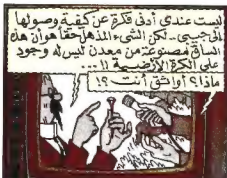 ليست عندى أدنى فكرة عن كيفية وصولها
إلى جيبى .. لكن الشىء المذهل حقا هو أن هذه
الساق مصنوعة من معدن ليس له وجود
على الكرة الأرضية !! ...
ماذا ؟ أواثق أنت ؟!